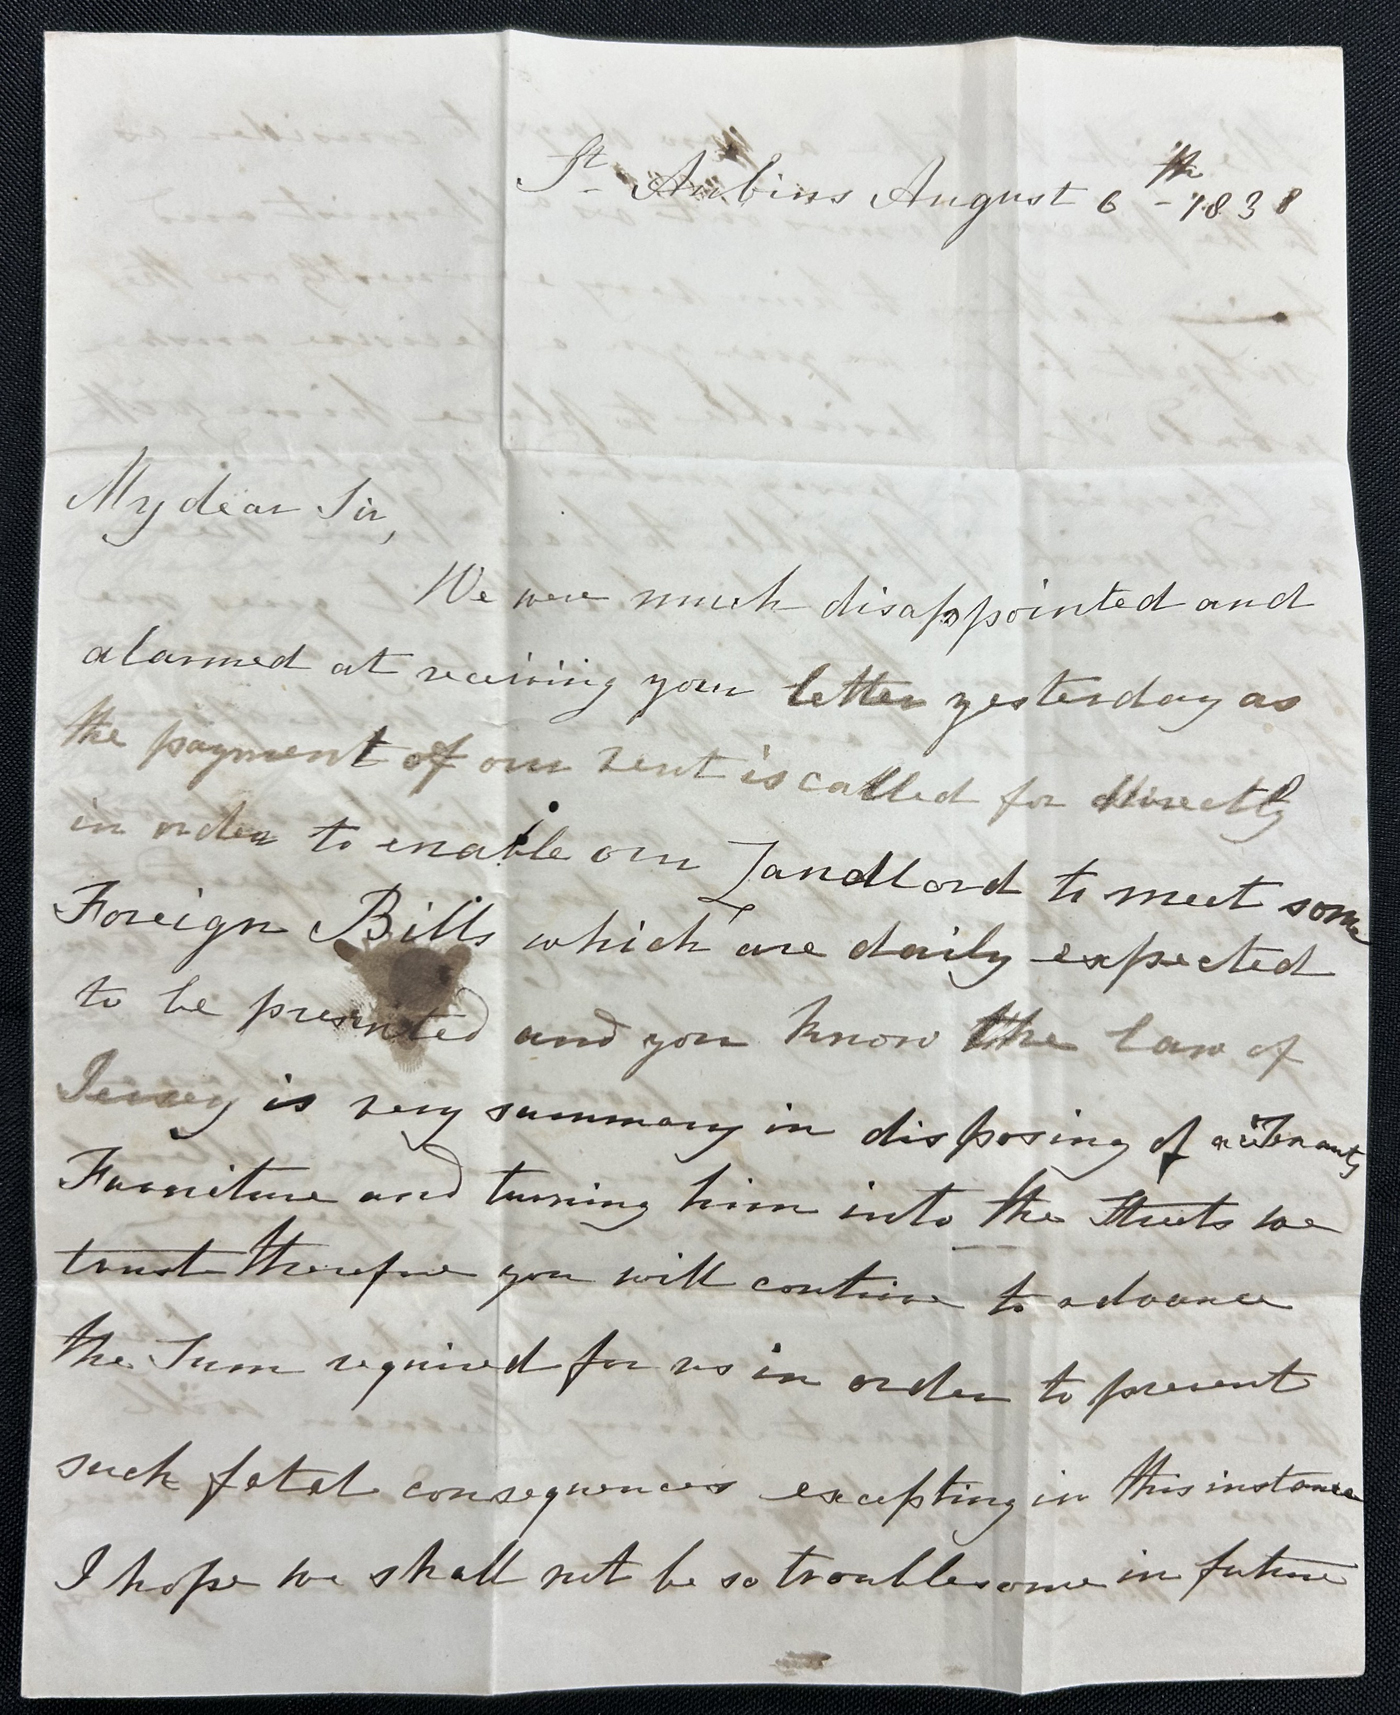 St Aubins August 6th - 1838
My dear Sir,
We were much disappointed and
alarmed at receiving your letter yesterday as
the payment of our rent is called for directly
in order to enable our Landlord to meet some
Foreign Bills which are daily expected
to be presented and you know the law of
Jersey is very summary in disposing of a Tenants
Furniture and turning him into the Streets we
trust therefore you will contrive to advance
the Sum required for us in order to prevent
such fatal consequences excepting in this instance
I hope we shall not be so troublesome in future